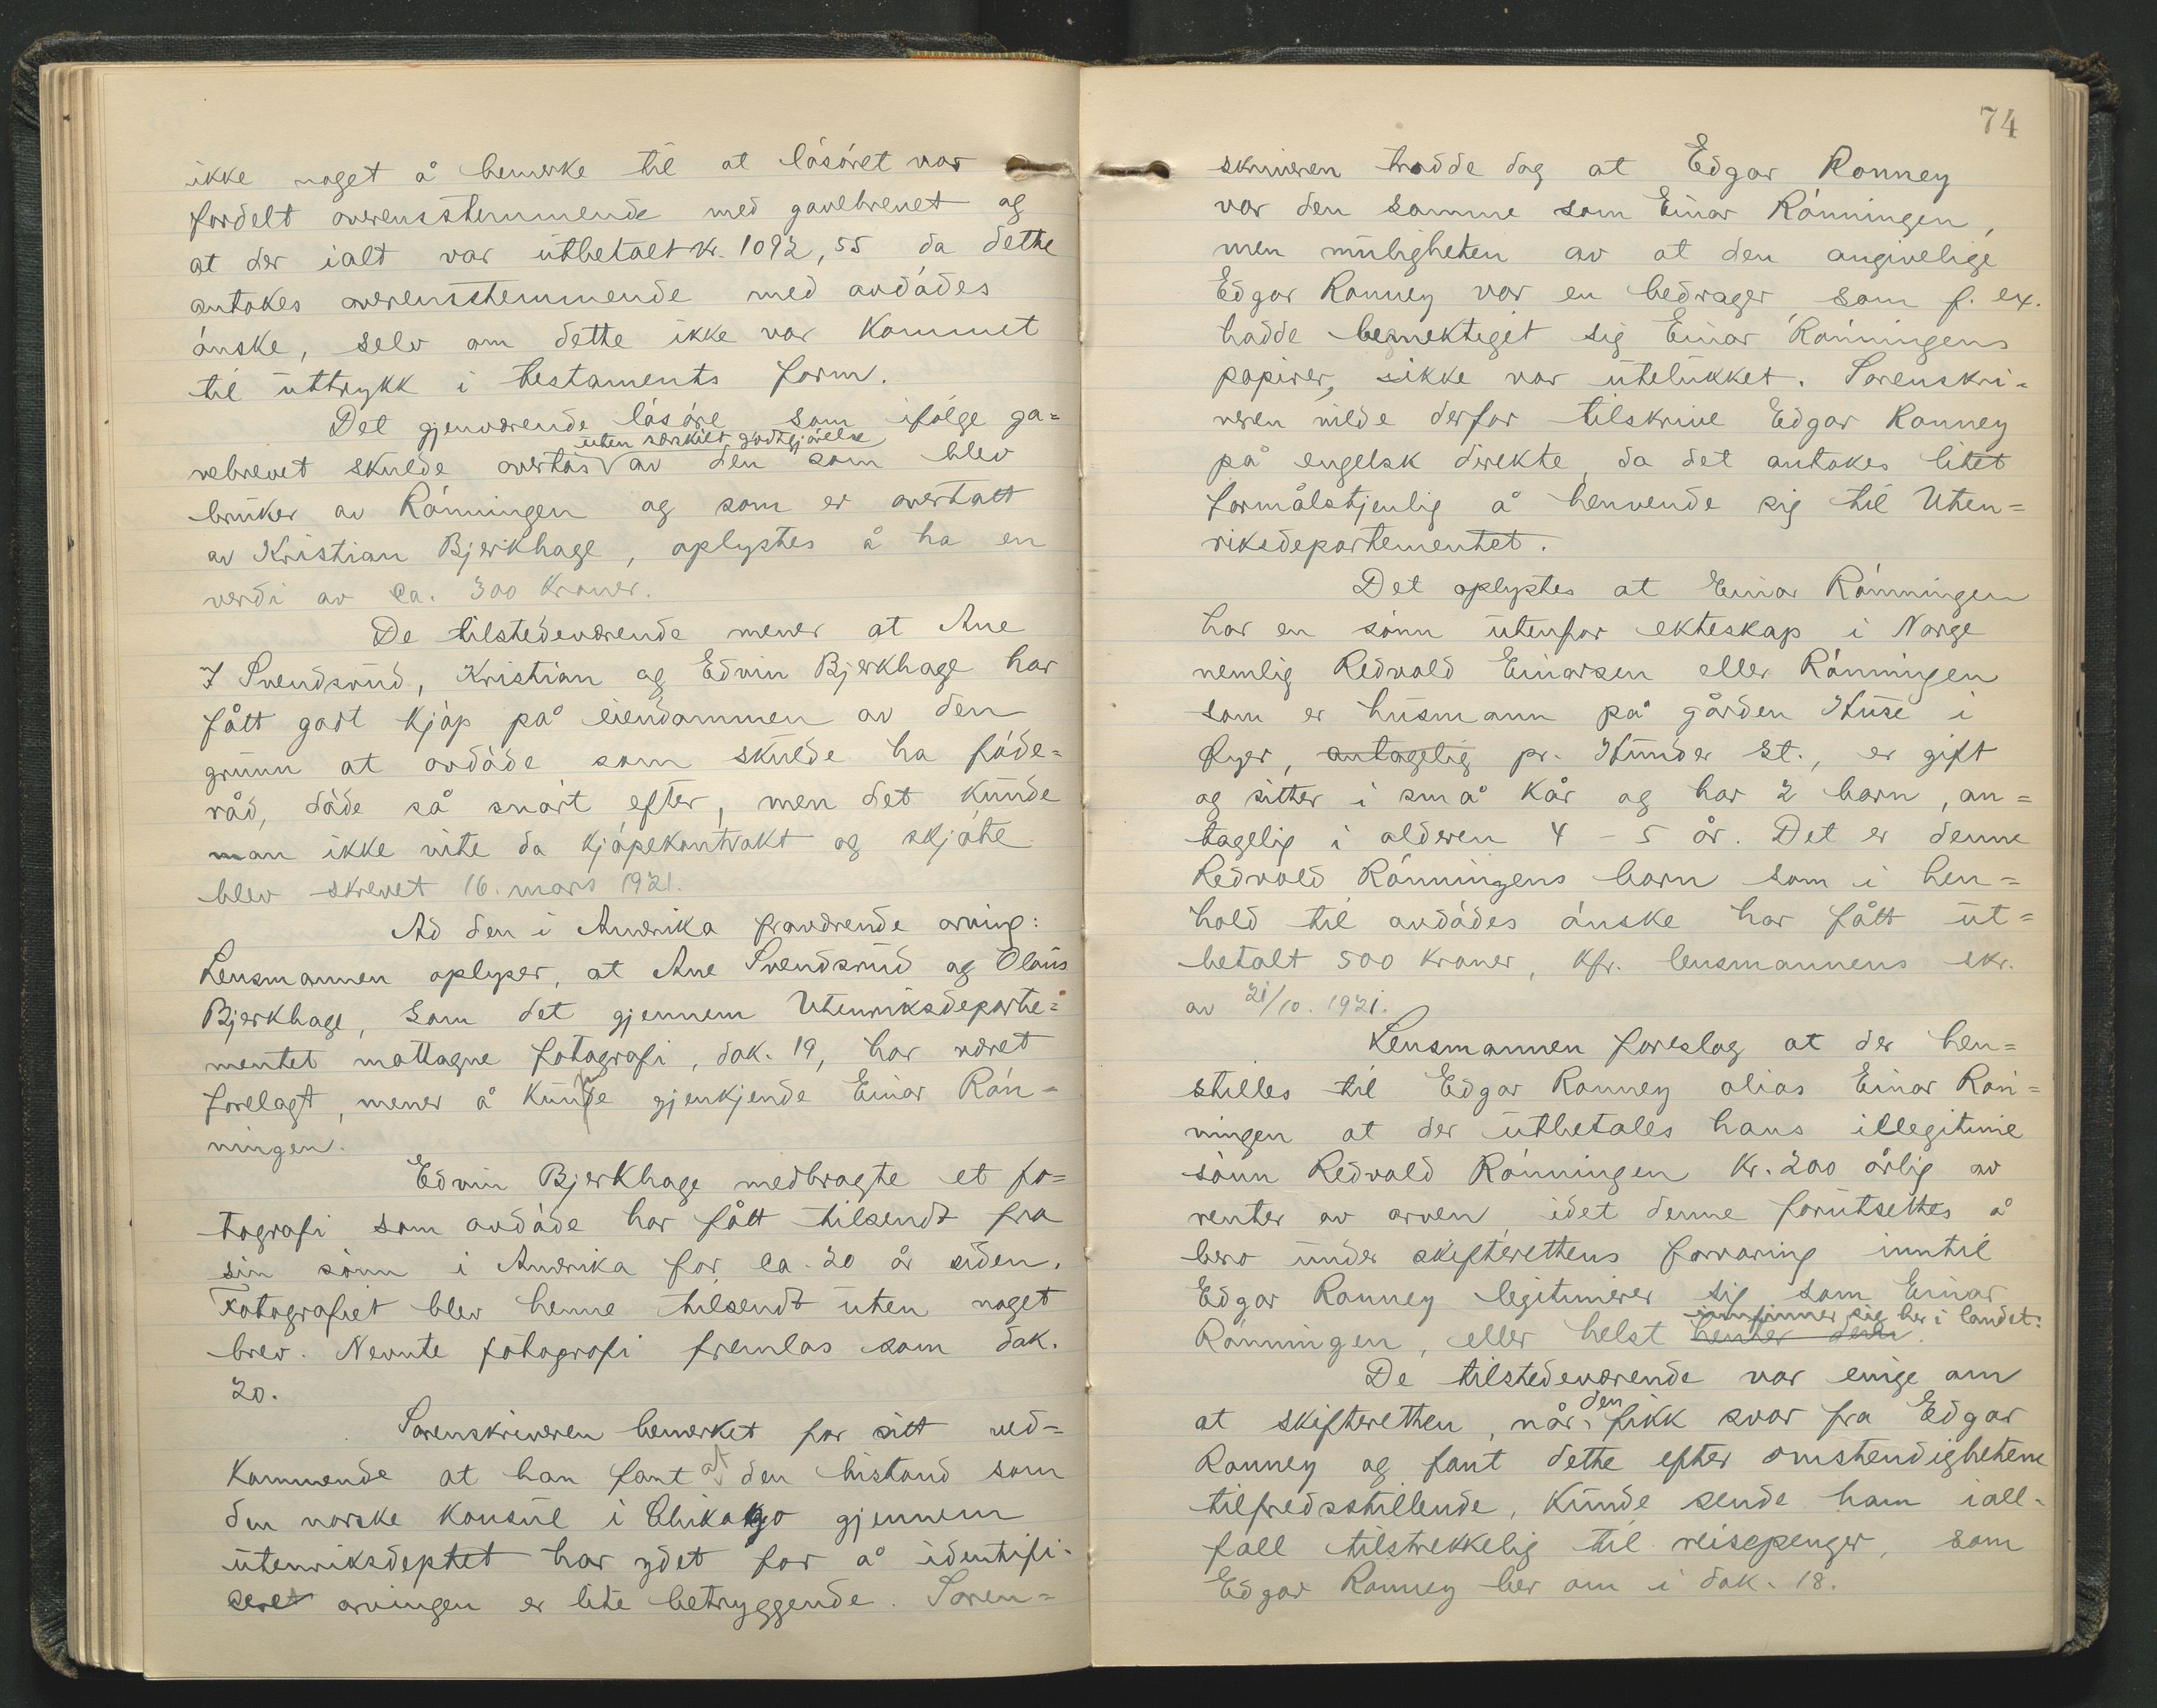 ikke noget å bemerke til at løsøret var
fordelt overensstemmende med gavebrevet og
at der ialt var utbetalt kr. 1092,55 da dette
antokes overensstemmende med avdødes
ønske, selv om dette ikke var kommet
til uttrykk i testaments form.
Det gjenværende løsøre som ifølge ga=
uten særskilt godtgjørelse
vebrevet skulde overtas av den som blev
bruker av Rønningen og som er overtatt
av Kristian Bjerkhage, oplystes å ha en
verdi av ca. 300 kroner.
De tilstedeværende mener at Ane
I Svendsrud, Kristian og Edvin Bjerkhage har
fått godt kjøp på eiendommen av den
grunn at avdøde som skulde ha føde=
råd, døde så snart efter, men det kunde
man ikke vite da kjøpekontrakt og skjøte
blev skrevet 16. mars 1921.
Ad den i Amerika fraværende arving:
Lensmannen oplyser, at Ane Svendsrud og Olaus
Bjerkhage, som det gjennem Utenriksdeparte=
mentet mottagne fotografi, dok. 19, har været
forelagt, mener å kunne gjenkjende Einar Røn=
ningen.
Edvin Bjerkhage medbragte et fo=
tografi som avdøde har fått tilsendt fra
sin sønn i Amerika for ca. 20 år siden.
Fotografiet blev henne tilsendt uten noget
brev. Nevnte fotografi fremlas som dok.
20.
Sorenskriveren bemerket for sitt ved=
kommende at han fant at den bistand som
den norske konsul i Chikago gjennem
utenriksdeptet har ydet for å identifi=
seret arvingen er lite betryggende. Soren=
74
skriveren trodde dog at Edgar Ronney
var den samme som Einar Rønningen,
men muligheten av at den angivelige
Edgar Ronney var en bedrager, som f. ex.
hadde bemektiget sig Einar Rønningens
papirer, ikke var utelukket. Sorenskri=
veren vilde derfor tilskrive Edgar Ronney
på engelsk direkte, da det antokes litet
formålstjenlig å henvende sig til Uten=
riksdepartementet.
Det oplystes at Einar Rønningen
har en sønn utenfor ekteskap i Norge
nemlig Redvald Einarsen eller Rønningen
som er husmann på gården Huse i
Øyer, antagelig pr. Hunder st., er gift
og sitter i små kår og har 2 barn, an=
tagelig i alderen 4 - 5 år. Det er denne
Redvald Rønningens barn som i hen=
hold til avdødes ønske har fått ut=
betalt 500 kroner, kfr. lensmannens skr.
av 21/10. 1921.
Lensmannen foreslog at der hen=
stilles til Edgar Ronney alias Einar Røn=
ningen at der utbetales hans illegitime
sønn Redvald Rønningen kr. 200 årlig av
renter av arven, idet denne forutsettes å
bero under skifterettens forvaring inntil
Edgar Ronney legitimerer sig som Einar
innfinner sig her i landet.
Rønningen, eller helst henter den.
De tilstedeværende var enige om
den
at skifteretten, når fikk svar fra Edgar
Ronney og fant dette efter omstendighetene
tilfredsstillende, kunde sende ham iall=
fall tilstrekkelig til reisepenger, som
Edgar Ronney ber om i dok. 18.